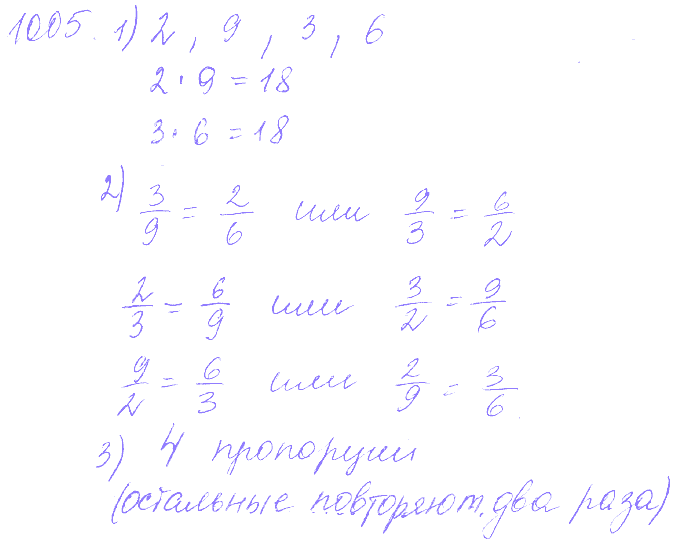 1005. 1) 2, 9, 3, 6
2 · 9 = 18
3 · 6 = 18
2) 3/9 = 2/6 или 9/3 = 6/2
2/3 = 6/9 или 3/2 = 9/6
9/2 = 6/3 или 2/9 = 3/6
3) 4 пропорции
(остальные повторяют. два раза)